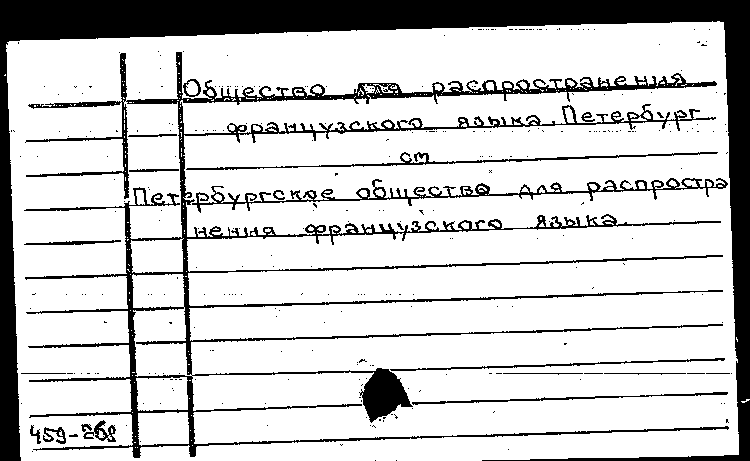 Общество для распространения
французского языка. Петербург
см
Петербургское общество для распростра
нения французского языка.
459-268